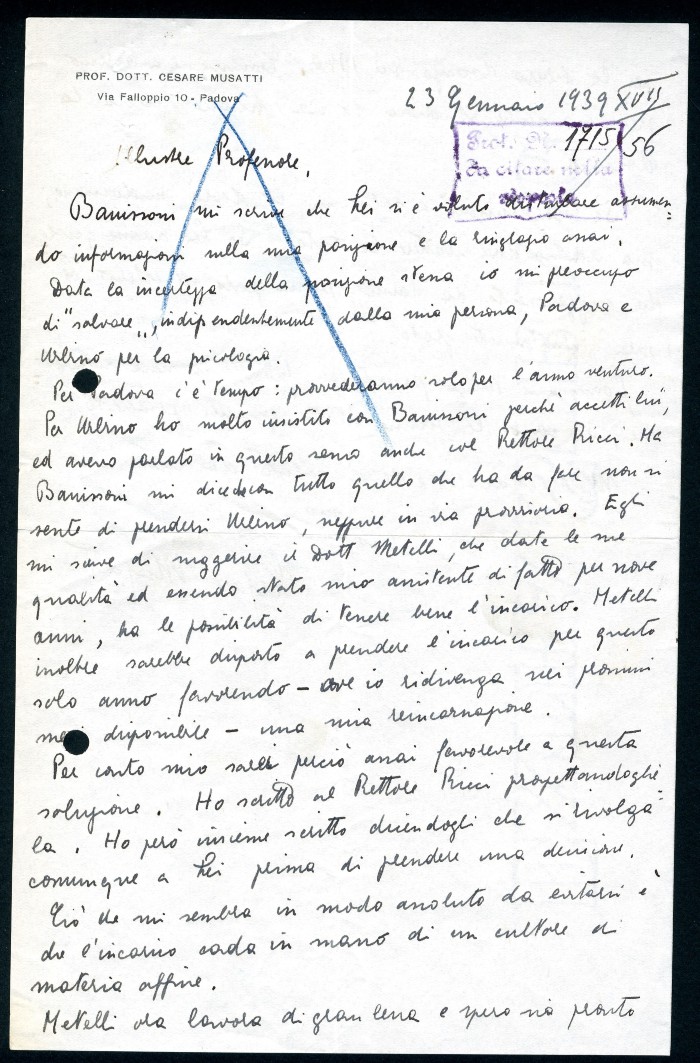 PROF. DOTT. CESARE MUSATTI
Via Falloppio 10 - Padova
23 Gennaio 1939 XVII
Prot. N. 1715/56
Da citare nella
Illustre Professore,
Banissoni mi scrive che Lei si è voluto disturbare assumen=
do informazioni sulla mia posizione e la ringrazio assai.
Data la incertezza della posizione stessa io mi preoccupo
di "salvare", indipendentemente dalla mia persona, Padova e
Urbino per la psicologia.
Per Padova c'è tempo: provvederanno solo per l'anno venturo.
Per Urbino ho molto insistito con Banissoni perchè accetti lui,
ed avevo parlato in questo senso anche col Rettore Ricci. Ma
Banissoni mi dice che con tutto quello che ha da fare non si
sente di prendersi Urbino, neppure in via provvisoria. Egli
mi scrive di suggerire il Dott Metelli, che date le sue
qualità ed essendo stato mio assistente di fatto per nove
anni, ha le possibilità di tenere bene l'incarico. Metelli
inoltre sarebbe disposto a prendere l'incarico per questo
solo anno favorendo - ove io ridivenga nei prossimi
mesi disponibile - una mia reincarnazione.
Per conto mio sarei perciò assai favorevole a questa
soluzione. Ho scritto al Rettore Ricci prospettandoglie=
la. Ho però insieme scritto dicendogli che si rivolga
comunque a Lei prima di prendere una decisione.
Ciò che mi sembra in modo assoluto da evitarsi è
che l'incarico cada in mano di un cultore di
materia affine.
Metelli ora lavora di gran lena e spero sia pronto